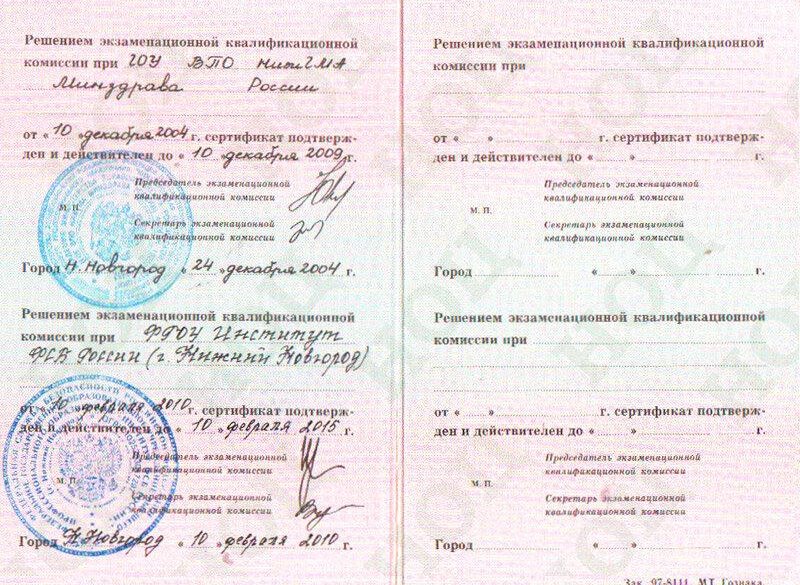 Решением экзаменационной квалификационной
комиссии при ГОУ ВПО НижГМА
Минздрава России
от « 10 » декабря 2004 г. сертификат подтверж-
ден и действителен до « 10 » декабря 2009 г.
Председатель экзаменационной
квалификационной комиссии
М. П.
Секретарь экзаменационной
квалификационной комиссии
Город Н. Новгород « 24 » декабря 2004 г.
Решением экзаменационной квалификационной
комиссии при ФГОУ Институт
ФСБ России (г. Нижний Новгород)
от « 10 » февраля 2010 г. сертификат подтверж-
ден и действителен до « 10 » февраля 2015 г.
Председатель экзаменационной
квалификационной комиссии
М. П.
Секретарь экзаменационной
квалификационной комиссии
Город Н. Новгород « 10 » февраля 2010 г.
Решением экзаменационной квалификационной
комиссии при
от « » г. сертификат подтверж-
ден и действителен до « » г.
Председатель экзаменационной
квалификационной комиссии
М. П.
Секретарь экзаменационной
квалификационной комиссии
Город « » г.
Решением экзаменационной квалификационной
комиссии при
от « » г. сертификат подтверж-
ден и действителен до « » г.
Председатель экзаменационной
квалификационной комиссии
М. П.
Секретарь экзаменационной
квалификационной комиссии
Город « » г.
Зак. 97-8111. МТ Гознака.